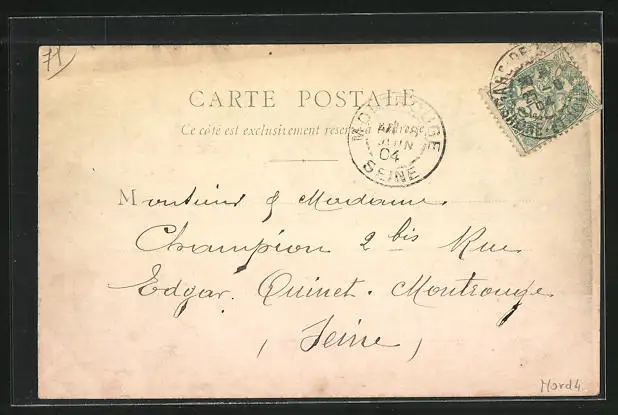 71
CARTE POSTALE
Ce côté est exclusivement réservé à l'adresse
MONTROUGE
JUIN
04
SEINE
Monsieur & Madame
Champion 2 bis Rue
Edgar Quinet. Montrouge
(Seine)